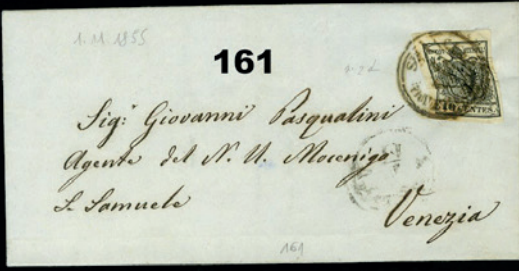 1.11.1855
161
CENTES.
Sig.r Giovanni Pasqualini
Agente del N. U. Mocenigo
S. Samuele
Venezia
161